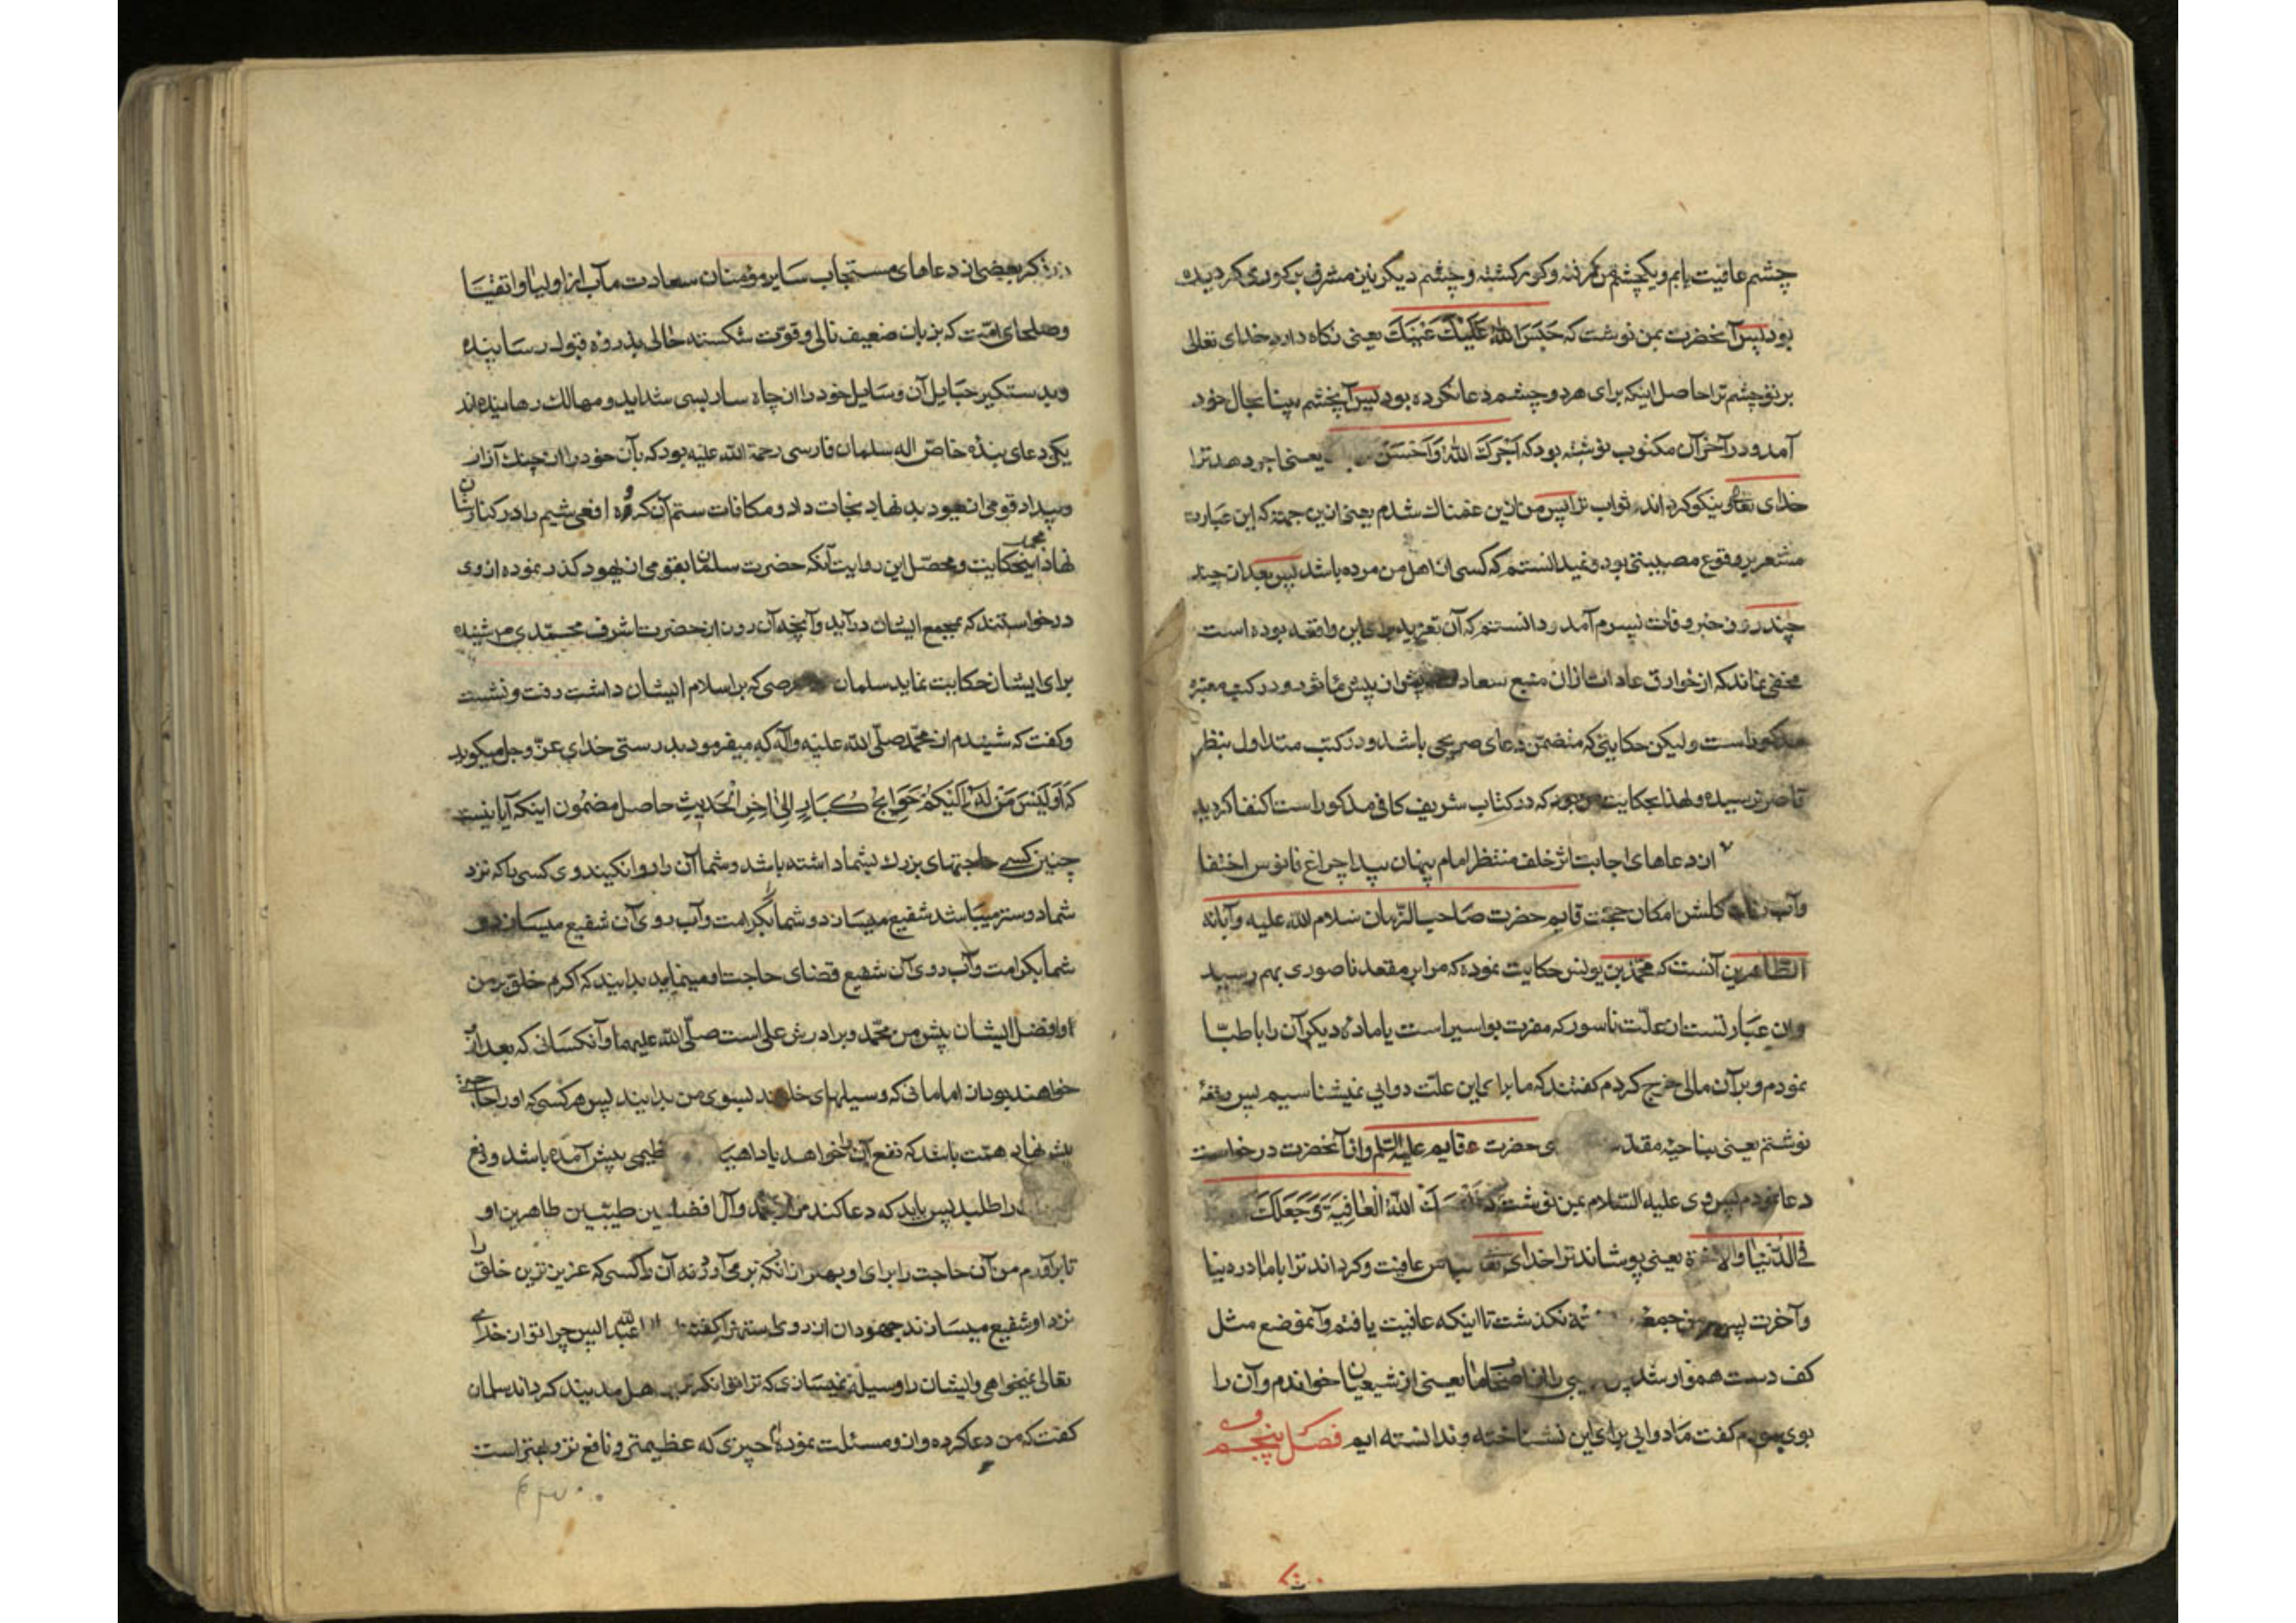 چشم عافیت یابم و یکچشم من کم نه وکور کشته و چشم دیکر نین مشرف بر کوری کردیده
بود پس آنحضرت بمن نوشت که حَبَسَ اللّٰهُ عَلَیْكَ عَیْنَكَ یعنی نکاه دارد خدای تعالی
بر تو چشم ترا حاصل اینکه برای هر دو چشم دعا نکرده بود پس آنچشم بینا بحال خود
آمد و در آخر آن مکتوب نوشته بود که آجَرَكَ اللّٰهُ وَاَحْسَنَ یعنی اجر دهد ترا
خدای تعالی و نیکو کرداند ثواب ترا پس من ازین غمناك شدم یعنی ازین جهة که این عبارت
مشعر بر وقوع مصیبتی بود و نمیدانستم که کسی از اهل من مرده باشد پس بعد از چند
چند روز خبر وفات پسرم آمد و دانستم که آن تعزیه برای این واقعه بوده است
مخفی نماند که از خوارق عادات ازان منبع سعادت بیش از پیش مأثور و در کتب معتبره
مذکور است ولیکن حکایتی که متضمن دعای صریحی باشد و در کتب متداول بنظر
قاصر نرسیده و لهذا بحکایت که در کتاب شریف کافی مذکور است اکتفا کردید
از دعاهای اجابت اثر خلف منتظر امام پنهان پیدا چراغ فانوس اختفا
وآب کلشن امکان حجّت قایم حضرت صاحب الزّمان سلام اللّٰه علیه وآبائه
الطّاهرین آنست که محمّد بن یونس حکایت نموده که مرا بر مقعد ناصوری بهم رسید
وان عبارتست از علّت ناسور که مفرت بواسیر است یا مادهٔ دیکر آن را باطبّا
نمودم و بر آن مالی خرج کردم کفتند که ما برای این علّت دوایی نمیشناسیم پس رقعهٔ
نوشتم یعنی بناحیهٔ مقدّسه حضرت قایم علیه السّلم واز آنحضرت درخواست
دعا نمودم پس وی علیه السّلام بمن نوشت که اللّٰهُ الْعافِیَةَ وَجَعَلَكَ
فی الدّنیا والآخرة یعنی پوشاند ترا خدای تعالی لباس عافیت و کرداند ترا با ما در دنیا
وآخرت پس بر من جمعه نکذشت تا اینکه عافیت یافتم وآنموضع مثل
کف دست هموار شد پس طبیبی را از اصحاب ما یعنی از شیعیان خواندم وآن را
بوی نمودم کفت ما دوایی برای این نشناخته و ندانسته ایم فصل پنجم
در ذکر بعضی از دعاهای مستجاب سایر مؤمنان سعادت مآب از اولیا واتقیا
وصلحای امّت که بزبان ضعیف نالی و قوّت شکسته حالی بذروهٔ قبول رسانیده
وبدستکیر حبایل آن وسایل خود را از چاه سار بسی شداید و مهالك رهانیده‌اند
یکی دعای بندهٔ خاصّ اله سلمان فارسی رحمة اللّٰه علیه بود که بآن خود را از چنك آزار
وبیداد قومی از یهود بد نهاد نجات داد و مکافات ستم آن کروه افعی شیم را در کنارشان
نهاد اینحکایت و محصّل این روایت آنکه حضرت سلمان بقومی از یهود کذر نموده از وی
درخواستند که بمجمع ایشان درآید وآنچه آن روز از حضرت اشرف محمّدی شنیده
برای ایشان حکایت نماید سلمان حرصی که بر اسلام ایشان داشت رفت و نشست
وکفت که شنیدم از محمّد صلّی اللّٰه علیه وآله که میفرمود بدرستی خدای عزّ وجل میکوید
که اَوَلَیْسَ مَنْ لَهُ اِلَیْکُمْ حَوَایِجُ کُبَارٍ اِلیٰ آخِرِ الْحَدیثِ حاصل مضمون اینکه آیا نیست
چنین کسی حاجتهای بزرك بشما داشته باشد و شما آن را روا نکنید و وی کسی را که نزد
شما دوستر میباشد شفیع میسازد و شما بکرامت وآب روی آن شفیع میسازد و
شما بکرامت وآب روی آن شفیع قضای حاجت او مینمایید بدانید که اکرم خلق بر من
وافضل ایشان پیش من محمّد و برادرش علی است صلّی اللّٰه علیهما وآنکسانی که بعد از
خواهند بود از امامانی که وسیلهای خلقند بسوی من بدانید پس هر کسی که او را حاجتی
پیش نهاد همّت باشد که نفع آن را خواهد یا داهیهٔ عظیمی پیش آمده باشد و دفع
را طلبد پس باید که دعا کند مرا بمحمّد وآل افضلین طیّبین طاهرین او
تا برآورم من آن حاجت را برای او بهتر از انکه برمی آورد آن را کسی که عزیزترین خلق را
نزد او شفیع میسازند جهودان از روی استهزا کفتند یا ابا عبد اللّٰه پس چرا تو از خدای
تعالی نمیخواهی و ایشان را وسیله نمیسازی که ترا توانکرترین اهل مدینه کرداند سلمان
کفت که من دعا کرده واز و مسئلت نموده‌ام چیزی که عظیمتر و نافع‌تر و بهتر است